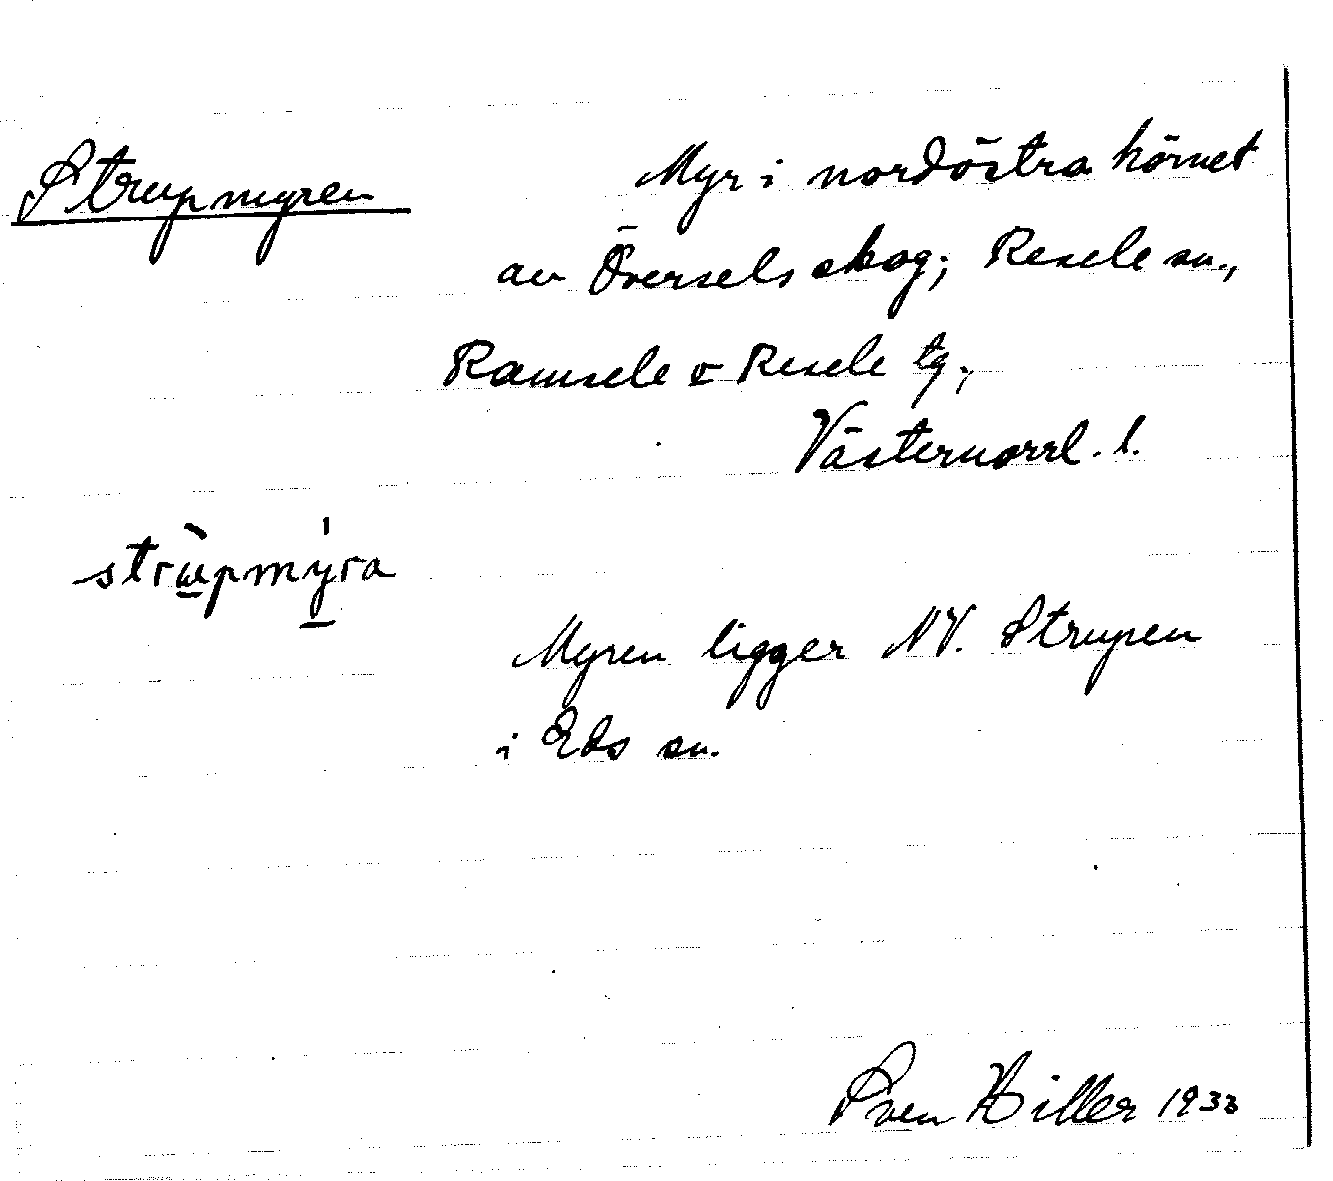 Strupmyren
Myr i nordöstra hörnet
av Översels skog; Resele sn.,
Ramsele o Resele tg.,
Västernorrl. l.
strùpmýra
Myren ligger NV. Strupen
i Eds sn.
Sven Hiller 1933